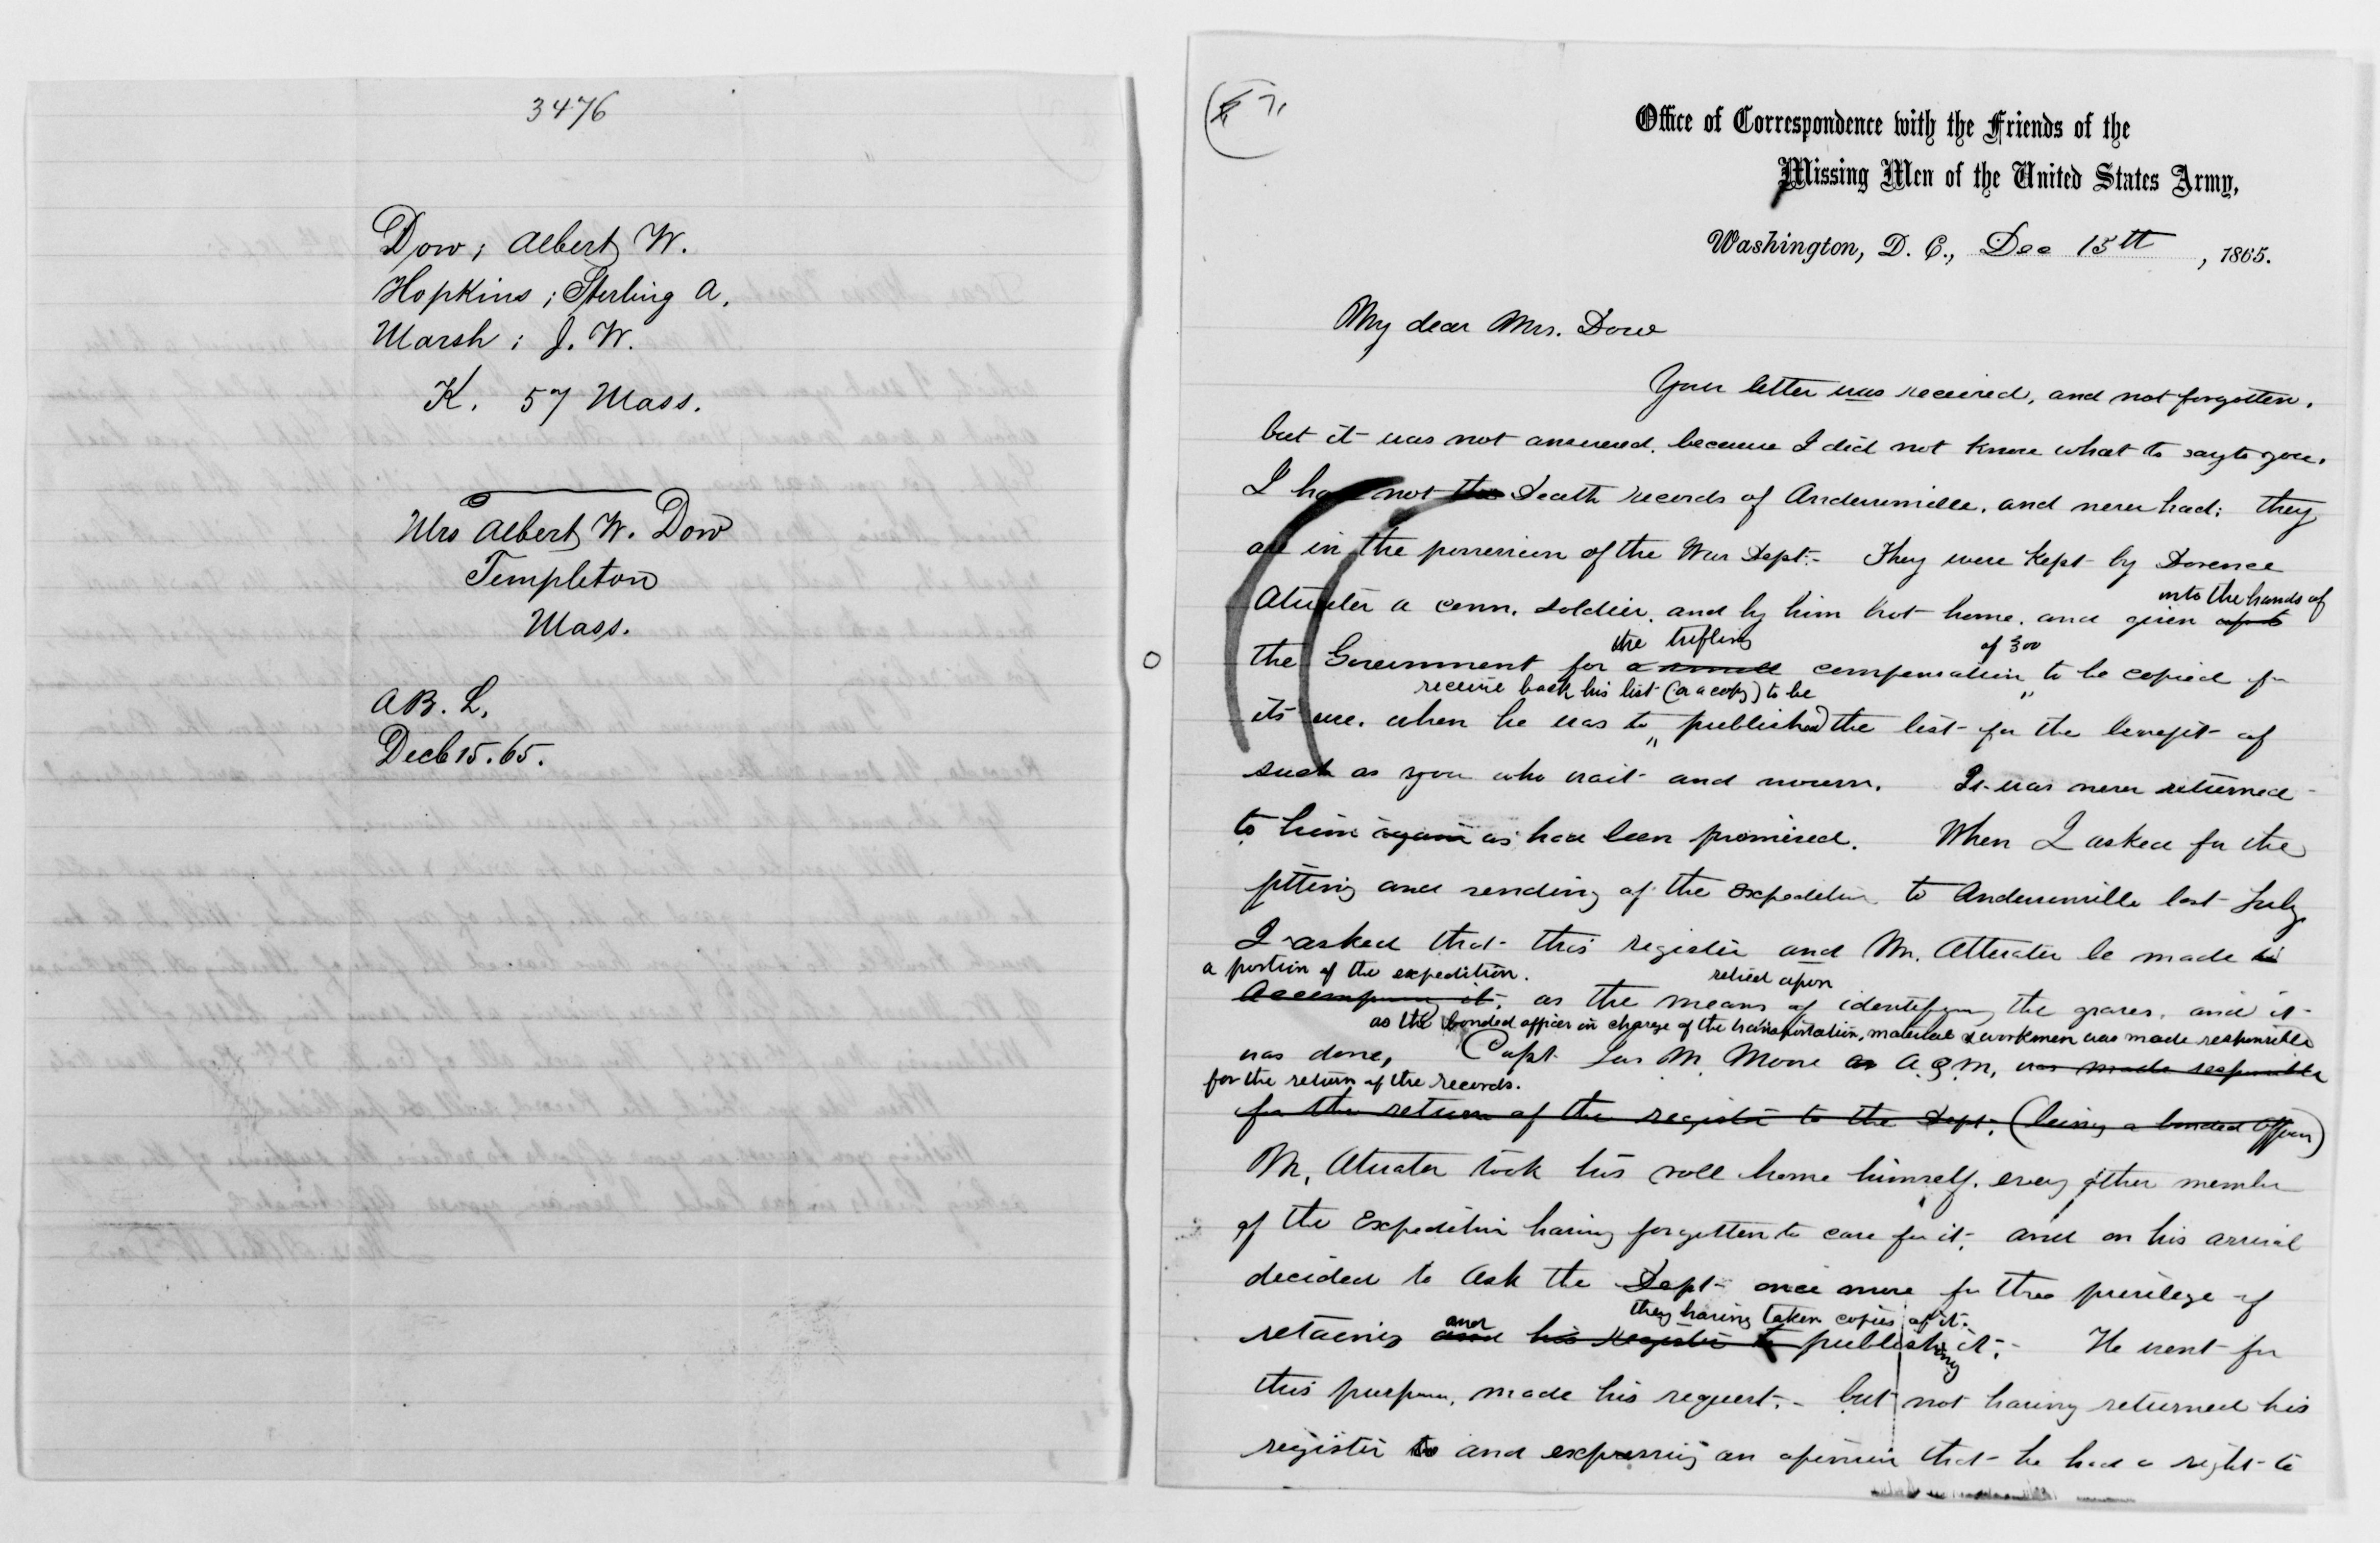 3476
Dow; Albert W.
Hopkins; Sterling A.
Marsh; J. W.
K. 57 Mass.
Mrs Albert W. Dow
Templeton
Mass.
A B. L.
Decb 15. 65.
7,
Office of Correspondence with the Friends of the
Missing Men of the United States Army,
Washington, D. C., Dec 15th, 1865.
My dear Mrs. Dow
Your letter was received, and not forgotten,
but it was not answered, because I did not know what to say to you.
I have not the Death records of Andersonville, and never had; they
are in the possession of the War Dept:- They were kept by Dorence
into the hands of
Atwater a conn. soldier, and by him brot home, and given
the trifling of 300
the Government for a small compensation to be copied for
receive back his list (or a copy) to be
its use, when he was to " published the list for the benefit of
such as you who wait and mourn. It was never returned
to him again as had been promised. When I asked for the
fitting and sending of the Expedition to Andersonville last July
I asked that this register and Mr. Atwater be made to
a portion of the expedition. relied upon
Accompany it, as the means of identifying the graves, and it
as the bonded officer in charge of the transportation, material & workmen was made responsible
was done, Capt. Jas M. Moore as A.Q.M, was made responsible
for the return of the records.
for the return of the register to the Dept. (being a bonded officer)
Mr, Atwater took his roll home himself, every other member
of the Expedition having forgotten to care for it, and on his arrival
decided to ask the Dept once more for the privilege of
and they having taken copies of it:
retaining and his register to publishing it;- He went for
this purpose, made his request,- but not having returned his
register to and expressing an opinion that he had a right to